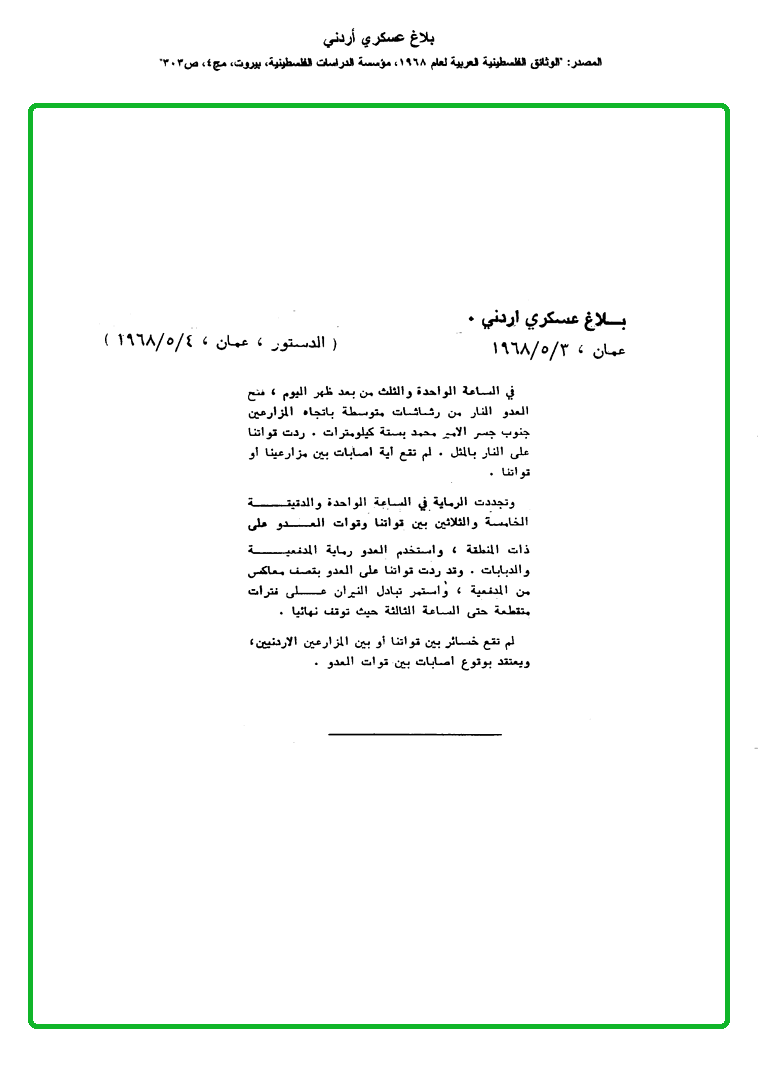 بلاغ عسكري أردني
المصدر: "الوثائق الفلسطينية العربية لعام ١٩٦٨، مؤسسة الدراسات الفلسطينية، بيروت، مج٤، ص٣٠٣"
بـــلاغ عسكري اردني .
عمان ، ١٩٦٨/٥/٣
( الدستور ، عمان ، ١٩٦٨/٥/٤ )
في الساعة الواحدة والثلث من بعد ظهر اليوم ، فتح
العدو النار من رشاشات متوسطة باتجاه المزارعين
جنوب جسر الامير محمد بستة كيلومترات . ردت قواتنا
على النار بالمثل . لم تقع أية اصابات بين مزارعينا او
قواتنا .
وتجددت الرماية في الساعة الواحدة والدقيقـــــــة
الخامسة والثلاثين بين قواتنا وقوات العـــــدو على
ذات المنطقة ، واستخدم العدو رماية المدفعيـــــــة
والدبابات . وقد ردت قواتنا على العدو بقصف معاكس
من المدفعية ، واستمر تبادل النيران عـــلى فترات
متقطعة حتى الساعة الثالثة حيث توقف نهائيا .
لم تقع خسائر بين قواتنا أو بين المزارعين الاردنيين،
ويعتقد بوقوع اصابات بين قوات العدو .